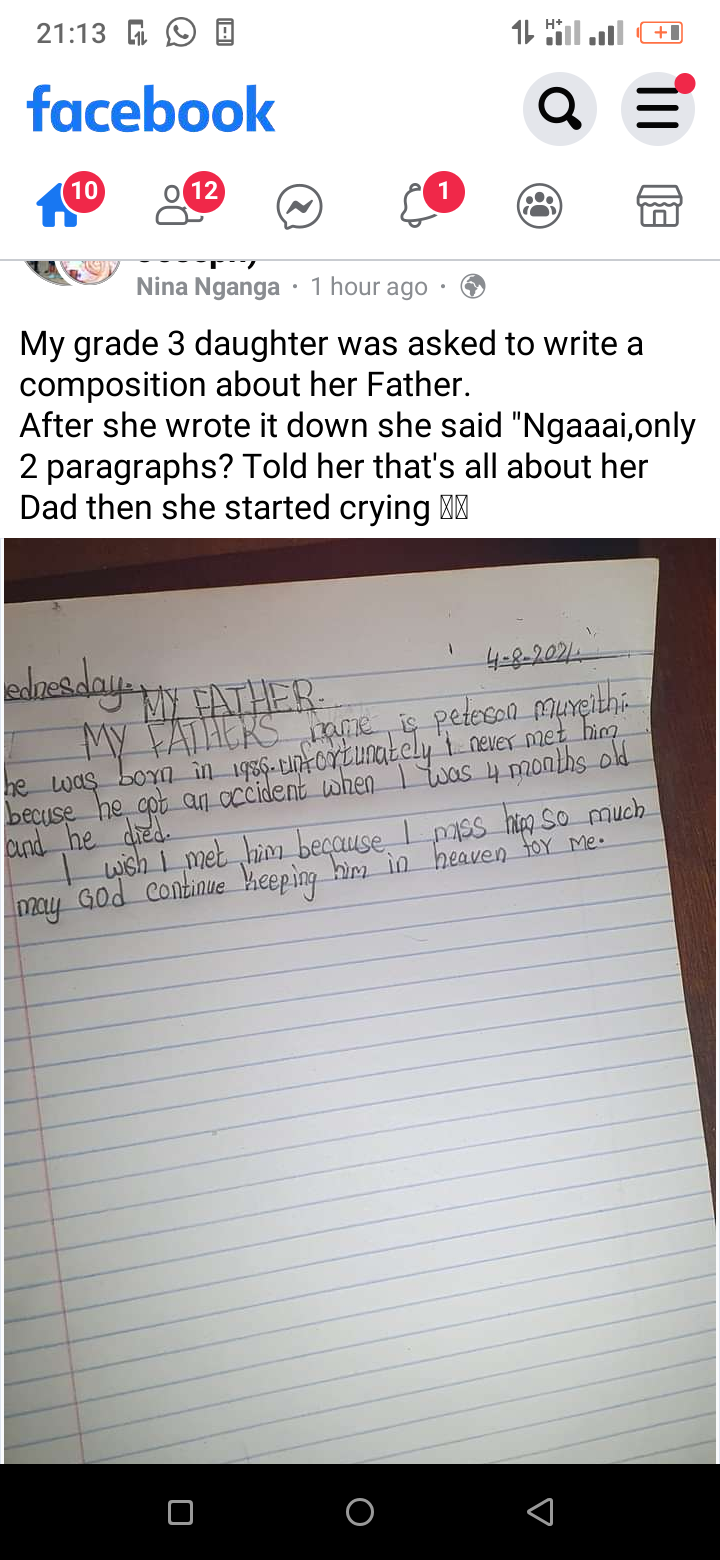 21:13
H+
facebook
10
12
1
Nina Nganga · 1 hour ago ·
My grade 3 daughter was asked to write a
composition about her Father.
After she wrote it down she said "Ngaaai,only
2 paragraphs? Told her that's all about her
Dad then she started crying
ednesday.
4-8-2021.
MY FATHER.
MY FATHERS name is peterson mureithi
he was born in 1986.unfortunately I never met him
becuse he got an accident when I was 4 months old
and he died.
I wish I met him because I miss him so much
may GOD continue keeping him in heaven for me.